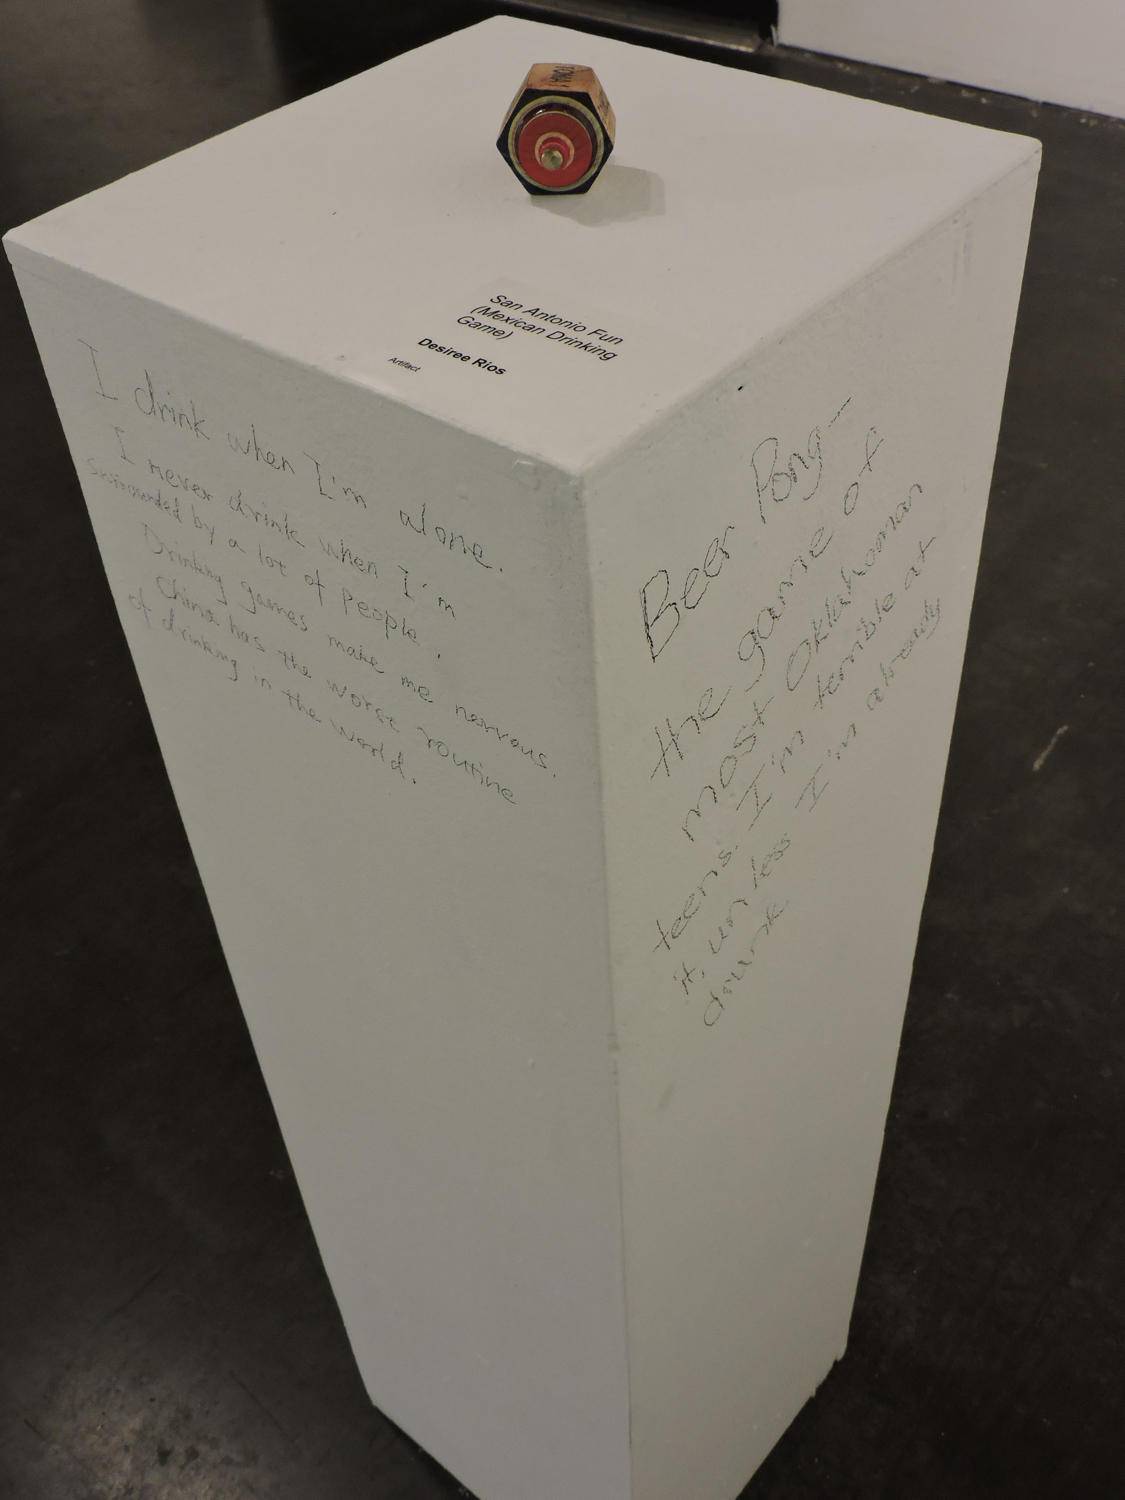 TOMA
San Antonio Fun
(Mexican Drinking
Game)
Desiree Rios
Artifact
I drink when I'm alone.
I never drink when I'm
Surrounded by a lot of people.
Drinking games make me nervous.
China has the worse routine
of drinking in the world.
Beer Pong—
the game of
most Oklahoman
teens. I'm terrible at
it, unless I'm already
drunk